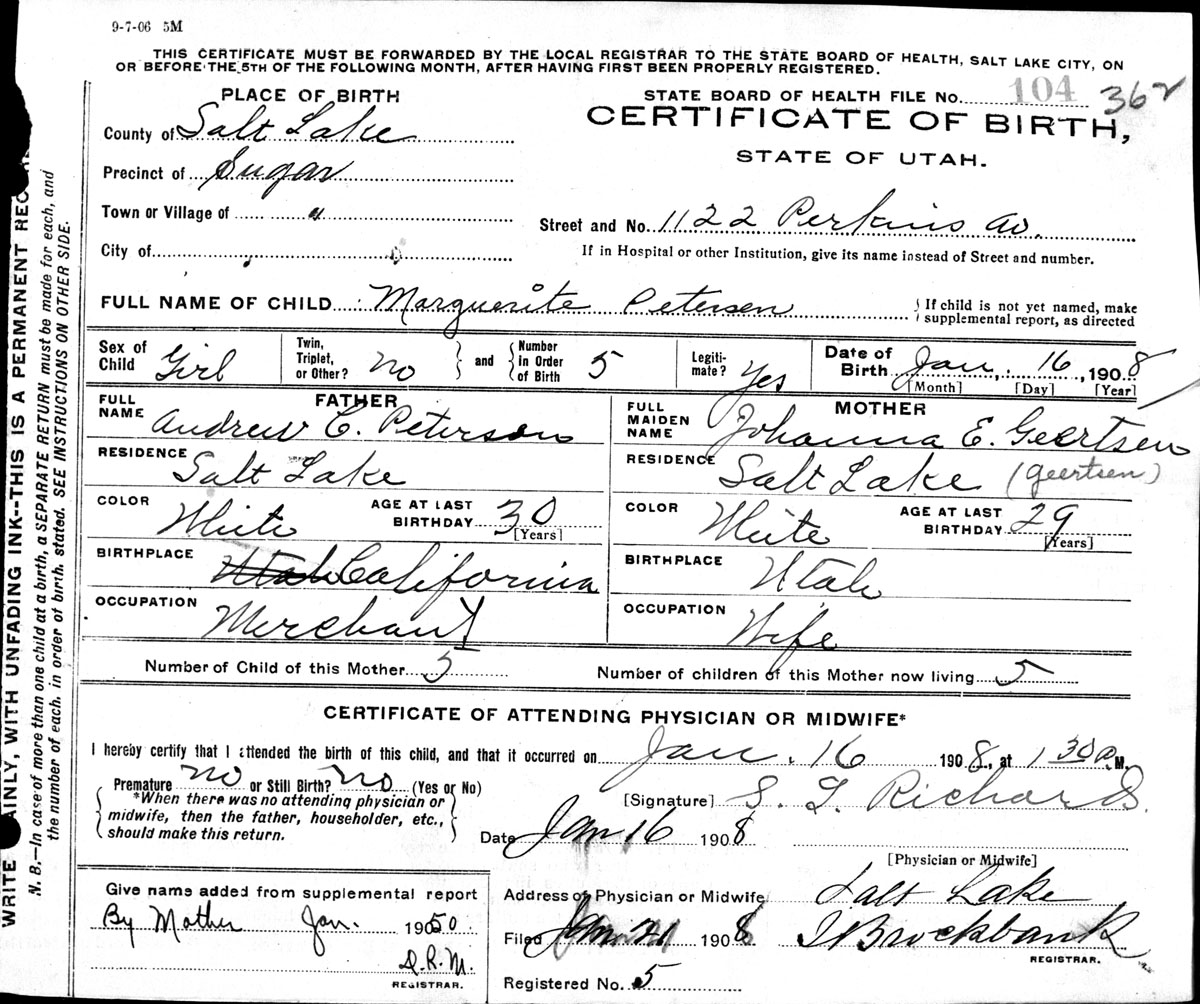 9-7-06 5M
THIS CERTIFICATE MUST BE FORWARDED BY THE LOCAL REGISTRAR TO THE STATE BOARD OF HEALTH, SALT LAKE CITY, ON
OR BEFORE THE 5TH OF THE FOLLOWING MONTH, AFTER HAVING FIRST BEEN PROPERLY REGISTERED.
PLACE OF BIRTH
STATE BOARD OF HEALTH FILE No. 104 362
County of Salt Lake
CERTIFICATE OF BIRTH,
STATE OF UTAH.
Precinct of Sugar
Town or Village of "
Street and No. 1122 Perkins av.
City of
If in Hospital or other Institution, give its name instead of Street and number.
FULL NAME OF CHILD Marguerite Petersen
{ If child is not yet named, make
supplemental report, as directed
Sex of Child Girl
Twin, Triplet, or Other? no } and { Number in Order of Birth 5
Legiti-mate? Yes
Date of Birth Jan. 16, 1908
[Month] [Day] [Year]
FATHER
FULL NAME Andrew C. Peterson
RESIDENCE Salt Lake
COLOR White AGE AT LAST BIRTHDAY 30
[Years]
BIRTHPLACE Utah California
OCCUPATION Merchant
MOTHER
FULL MAIDEN NAME Johanna E. Geertsen
RESIDENCE Salt Lake (geertsen)
COLOR White AGE AT LAST BIRTHDAY 29
[Years]
BIRTHPLACE Utah
OCCUPATION Wife
Number of Child of this Mother 5 Number of children of this Mother now living 5
CERTIFICATE OF ATTENDING PHYSICIAN OR MIDWIFE*
I hereby certify that I attended the birth of this child, and that it occurred on Jan. 16 1908, at 1 30 P.M.
Premature no or Still Birth? no (Yes or No)
{ *When there was no attending physician or
midwife, then the father, householder, etc.,
should make this return. }
[Signature] S. L. Richards.
Date Jan 16 1908
[Physician or Midwife]
Give name added from supplemental report
By Mother Jan. 1950.
D.R.M.
REGISTRAR.
Address of Physician or Midwife Salt Lake
Filed Jan 1908 Brockbank
REGISTRAR.
Registered No. 5
WRITE AINLY, WITH UNFADING INK--THIS IS A PERMANENT REC
N. B.—In case of more than one child at a birth, a SEPARATE RETURN must be made for each, and
the number of each, in order of birth, stated. SEE INSTRUCTIONS ON OTHER SIDE.